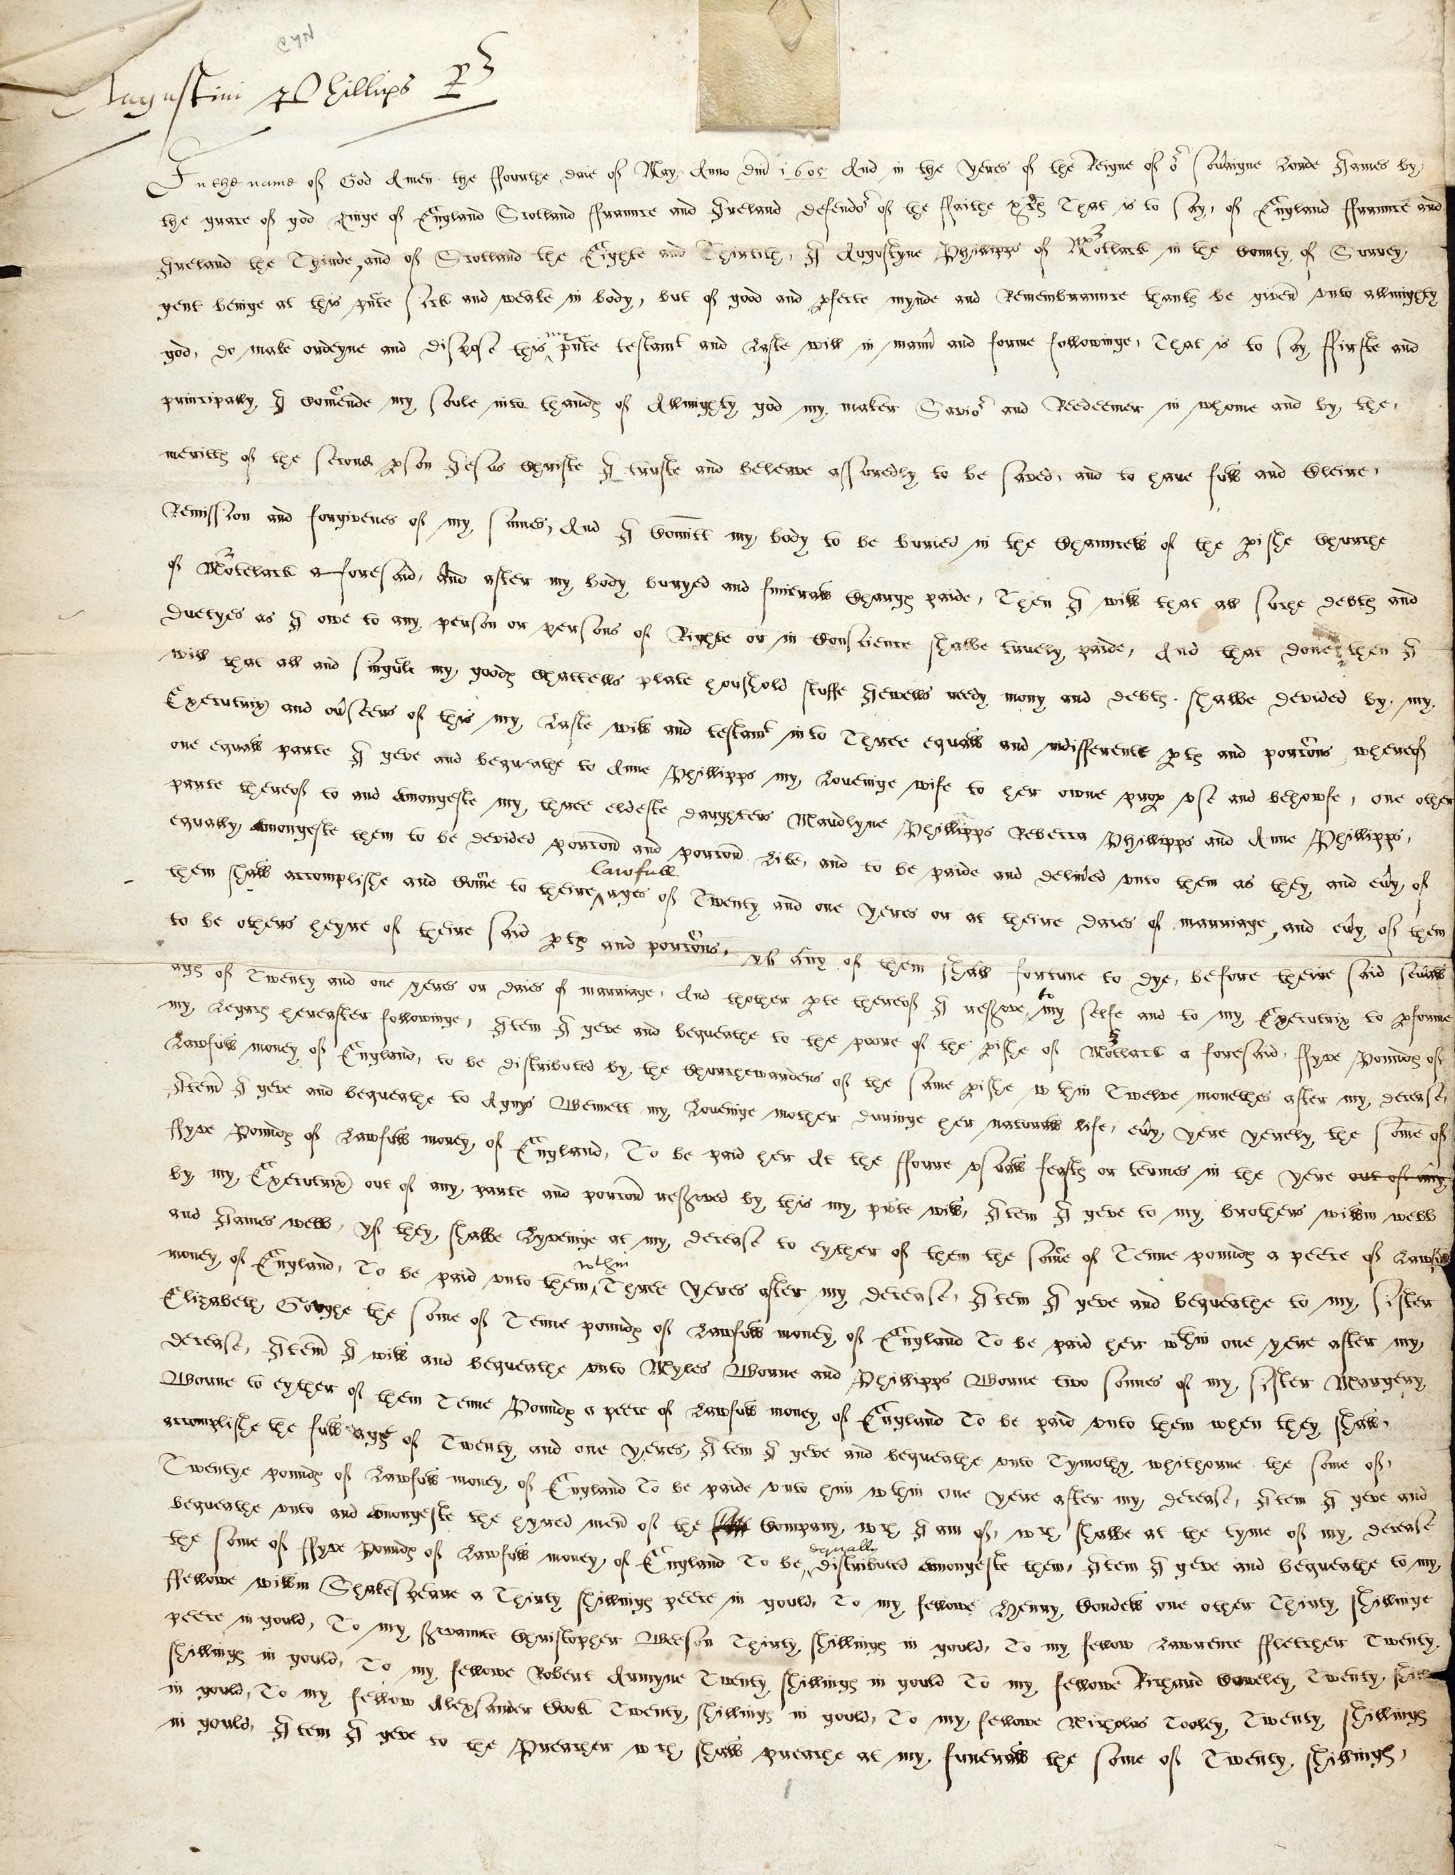 Augustini Phillips
In the name of God Amen the ffourthe daie of May Anno dm̄ 1605 And in the yeres of the Reigne of or sov̄aigne Lorde James by
the grace of god Kinge of England Scotland ffraunce and Ireland defendor of the ffaithe &c That is to say, of England ffraunce and
Ireland the Thirde, and of Scotland the Eighte and Thirtith, I Augustyne Phillipps of Mortlack in the County of Surrey,
gent beinge at this pn̄te sick and weake in body, but of good and pfecte mynde and Remembraunce thankes be given vnto allmighty
god, do make ordeyne and dispose this my pn̄te testamt and Laste will in mann̄ and forme followinge, That is to say ffirste and
principally I Com̄ende my soule into thandes of Allmighty god my maker Savior and Redeemer in whome and by the
meritts of the second pson Jesus Christe I truste and beleeve assuredly to be saved, and to have full and Cleire,
Remission and forgivenes of my sinnes, And I Com̄itt my body to be buried in the Chauncell of the pishe Churche
of Mortelack aforesaid, And after my body buryed and funerall Charges paide, Then I will that all suche debtes and
duetyes as I owe to any person or persons of Righte or in Conscience shalbe truely paide, And that done then I
will that all and singuler my goodes Chattells plate houshold stuffe Jewells reedy mony and debtes shalbe devided by my
Executrix and ov̄seers of this my Laste will and testamt into Three equall and indifferente ptes and porc̄ons whereof
one equall parte I geve and bequeathe to Anne Phillipps my Lovenige wife to her owne prop vse and behowfe, One other
parte thereof to and Amongeste my three eldeste daughters Maudlyne Phillipps Rebecca Phillipps and Anne Phillipps,
equally Amongeste them to be devided porc̄on and porc̄on Like, and to be paide and deliv̄ed vnto them as they and ev̄y of
them shall accomplishe and Come to theire Lawfull ages of Twenty and one yeres or at theire daies of marriage, and ev̄y of them
to be others heyre of theire said ptes and porc̄ons, yf any of them shall fortune to dye, before theire said sev̄all
ages of Twenty and one yeres or daies of marriage, And thother pte thereof I reserve to my selfe and to my Executrix to pforme
my Legaces hereafter followinge, Item I geve and bequeathe to the poore of the pishe of Mortlack aforesaid, ffyve Poundes of
Lawfull money of England, to be distributed by the Churchewardens of the same pishe wthin Twelve monethes after my decease,
Item I geve and bequeathe to Agnys Bennett my Lovenige mother duringe her naturall life, ev̄y yere yerely the some of
ffyve Poundes of Lawfull money of England, To be paid her At the ffoure vsuall feastes or termes in the yere out of any
by my Executrix out of any parte and porc̄on reserved by this my pn̄te will, Item I geve to my brothers willm̄ webb
and James webb, yf they shalbe Lyvenige at my decease to eyther of them the some of Tenne poundes a peece of Lawfull
money of England, To be paid vnto them wthin Three yeres after my decease, Item I geve and bequeathe to my sister
Elizabeth Goughe the some of Tenne poundes of Lawfull money of England To be paid her wthin one yere after my
decease, Item I will and bequeathe vnto Myles Borne and Phillipps Borne two sonnes of my sister Margery
Borne to eyther of them Tenne Poundes a peece of Lawfull money of England To be paid vnto them when they shall
accomplishe the full age of Twenty and one yeres, Item I geve and bequeathe vnto Tymothy whithorne the some of
Twentye poundes of Lawfull money of England To be paide vnto him wthin one yere after my decease, Item I geve and
bequeathe vnto and Amongeste the hyred men of the Company wch I am of, wch shalbe at the tyme of my decease
the some of ffyve Poundes of Lawfull money of England To be equally distributed Amongeste them, Item I geve and bequeathe to my
ffellowe willm̄ Shakespeare a Thirty shillinges peece in gould, To my fellowe Henry Condell one other Thirty shillinge
peece in gould, To my servaunte Christopher Beeson Thirty shillinges in gould, To my fellow Lawrence ffletcher Twenty
shillinges in gould, To my fellowe Robert Armyne Twenty shillinges in gould To my fellowe Richard Coweley Twenty shillinges
in gould, To my fellow Alexsander Cook Twenty shillinges in gould, To my fellowe Nicholas Tooley, Twenty shillinges
in gould, Item I geve to the Preacher wch shall preache at my funerall the some of Twenty shillinges,